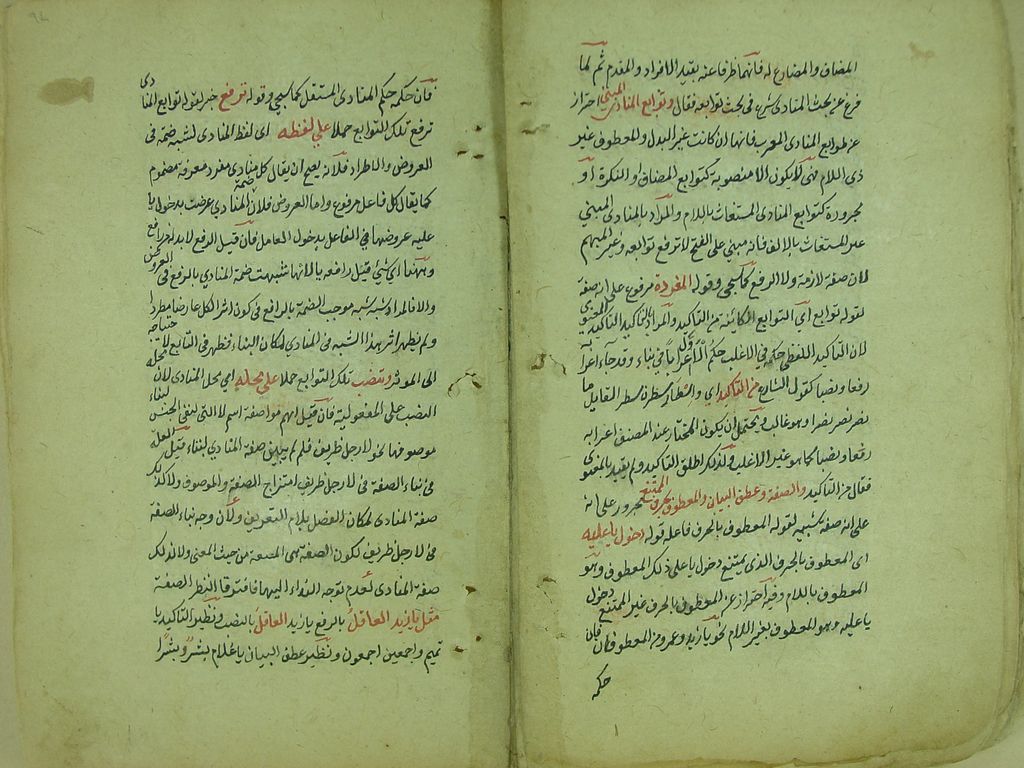 المضاف والمضارع له فانهما ظرفا عنه بقيد الافراد والمقدم ثم لما
فرغ عن بحث المنادى شرع في بحث توابعه فقال وتوابع المنادى المبني احتراز
عن توابع المنادى المعرب فانها ان كانت غير البدل والمعطوف غير
ذى اللام فهى لا يكون الا منصوبة كتوابع المضاف او النكرة او
مجرورة كتوابع المنادى المستغاث باللام والمراد بالمنادى المبني
غير المستغاث بالالف فان مبني على الفتح لا ترفع توابعه وغير المبهم
لان صفة لازمة ولا الرفع كما سيجى وقوله المفردة مرفوع على انه صفة
لقوله توابع اى التوابع الكائنة من التاكيد والمراد بالتاكيد التاكيد المعنوى
لان التاكيد اللفظى حكمه في الاغلب حكم الاول اعرابا في بناء وقد جاء اعرابه
رفعا ونصبا كقول الشارع من التاكيد اى واسطار سطرن سطر القايل يا
نصر نصر نصرا وهو غالب ويحتمل ان يكون المختار عند المصنف اعرابه
رفعا ونصبا كما هو غير الاغلب ولذلك اطلق التاكيد ولم يقيد بالمعنوى
فقال من التاكيد والصفة وعطف البيان والمعطوف بحرف الممتنع مجرور على انه
على انه صفة لقوله المعطوف بالحرف فاعله قوله دخول يا عليه
اى المعطوف بالحرف الذى يمتنع دخول يا على ذلك المعطوف وهو
المعطوف باللام وفيه احتراز عن المعطوف بالحرف غير الممتنع دخول
يا عليه وهو المعطوف بغير اللام نحو يا زيد وعمرو من المعطوف فان
حكمه
فان حكمه حكم المنادى المستقل كما سيجى وقوله ترفع خبر لقوله توابع المنادى
ترفع تلك التوابع حملا على لفظه اى لفظ المنادى لشبه ضمة في
العروض والاطراد فلانه يصح ان يقال كل منادى مفرد معرفة مضموم
كما يقال كل فاعل مرفوع واما العروض فلان ضمة المنادى عرضت بدخول يا
عليه عروضها في الفاعل بدخول العامل فان قيل الرفع لا بد له من رافع
وههنا اى شئ قيل رافعه يا لانها شبهت ضمة المنادى بالرفع في العروض
والا فالمراد شبه موجب الضمة بالرافع في كون اثر الكل عارضا مطردا
ولم يظهر اثر هذا الشبه في المنادى لمكان البناء فتظهر في التابع لا حتياجه
الى الموثر وتنصب تلك التوابع حملا على محله اى محل المنادى لان محله
النصب على المفعولية فان قيل انهم مواصفة اسم لا التى لنفى الجنس لبناء
موصوفها نحو لا رجل ظريف فلم لم يبين صفة المنادى لبناء قيل العلة
في بناء الصفة في لا رجل ظريف امتزاج الصفة والموصوف ولا كذلك
صفة المنادى لمكان الفصل بلام التعريف ولأن وجه بناء الصفة
في لا رجل ظريف لكون الصفة هى المنفية من حيث المعنى ولا كذلك
صفة المنادى لعدم توجه النداء اليها فافترقا النظر الصفة
مثل يا زيد العاقل بالرفع يا زيد العاقل بالنصب ونظير التاكيد يا
تميم واجمعين اجمعون ونظير عطف البيان يا غلام بشر وبشرا